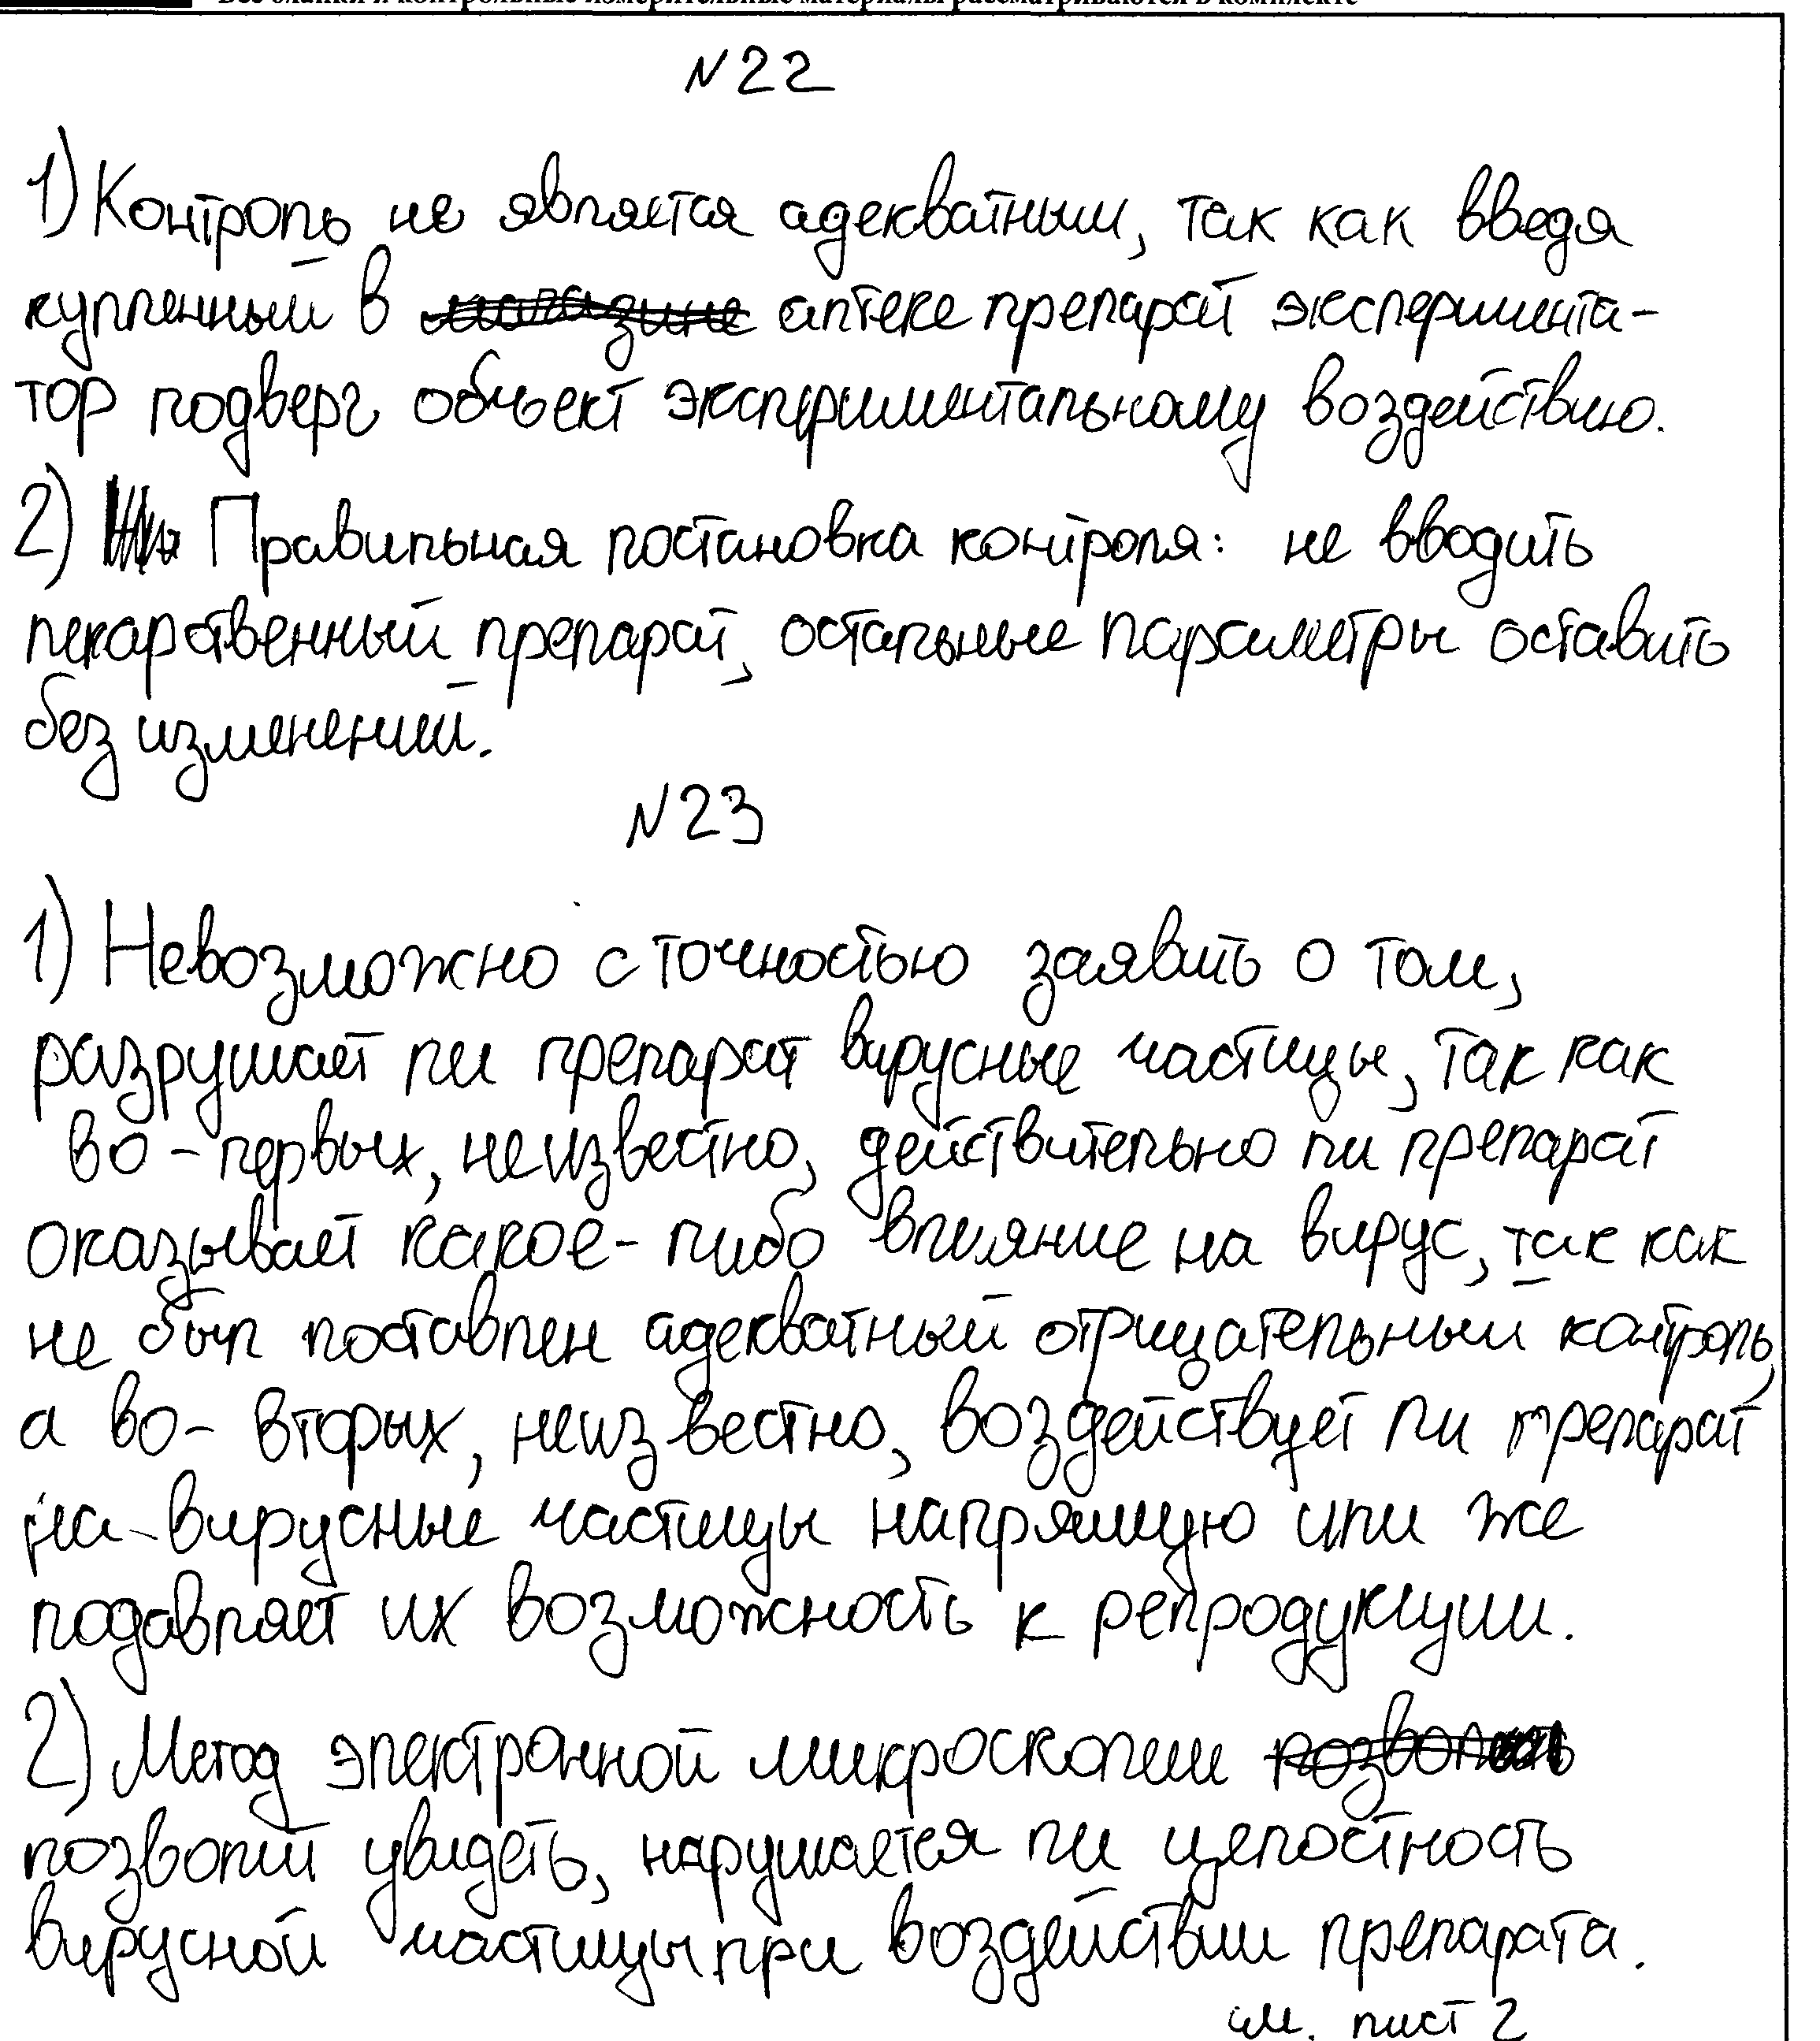 Все бланки и контрольные измерительные материалы рассматриваются в комплекте
№22
1) Контроль не является адекватным, так как введя
купленный в магазине аптеке препарат экспримента-
тор подверг объект экспериментальному воздействию.
2) Правильная постановка контроля: не вводить
лекарственный препарат, остальные параметры оставить
без изменений.
№23
1) Невозможно с точностью заявить о том,
разрушает ли препарат вирусные частицы, так как
во-первых, неизвестно, действительно ли препарат
оказывает какое-либо влияние на вирус, так как
не был поставлен адекватный отрицательный контроль,
а во-вторых, неизвестно, воздействует ли препарат
на вирусные частицы напрямую или же
подавляет их возможность к репродукции.
2) Метод электронной микроскопии
позволит увидеть, нарушается ли целостность
вирусной частицы при воздействии препарата.
см. лист 2